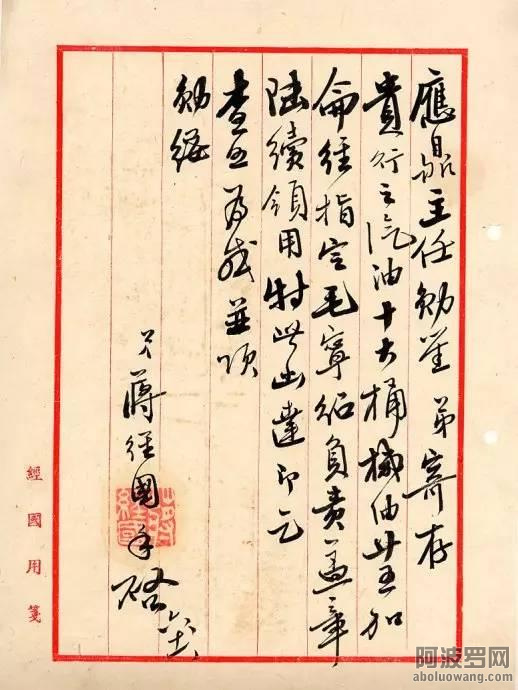 應鼎主任勛鑒 弟寄存
貴行之汽油十大桶機油廿五加
侖經指定毛寧紹負責蓋章
陸續領用特此函達即乞
查照為感並頌
勛綏
弟蔣經國手啟
經國用箋
阿波罗网
aboluowang.com